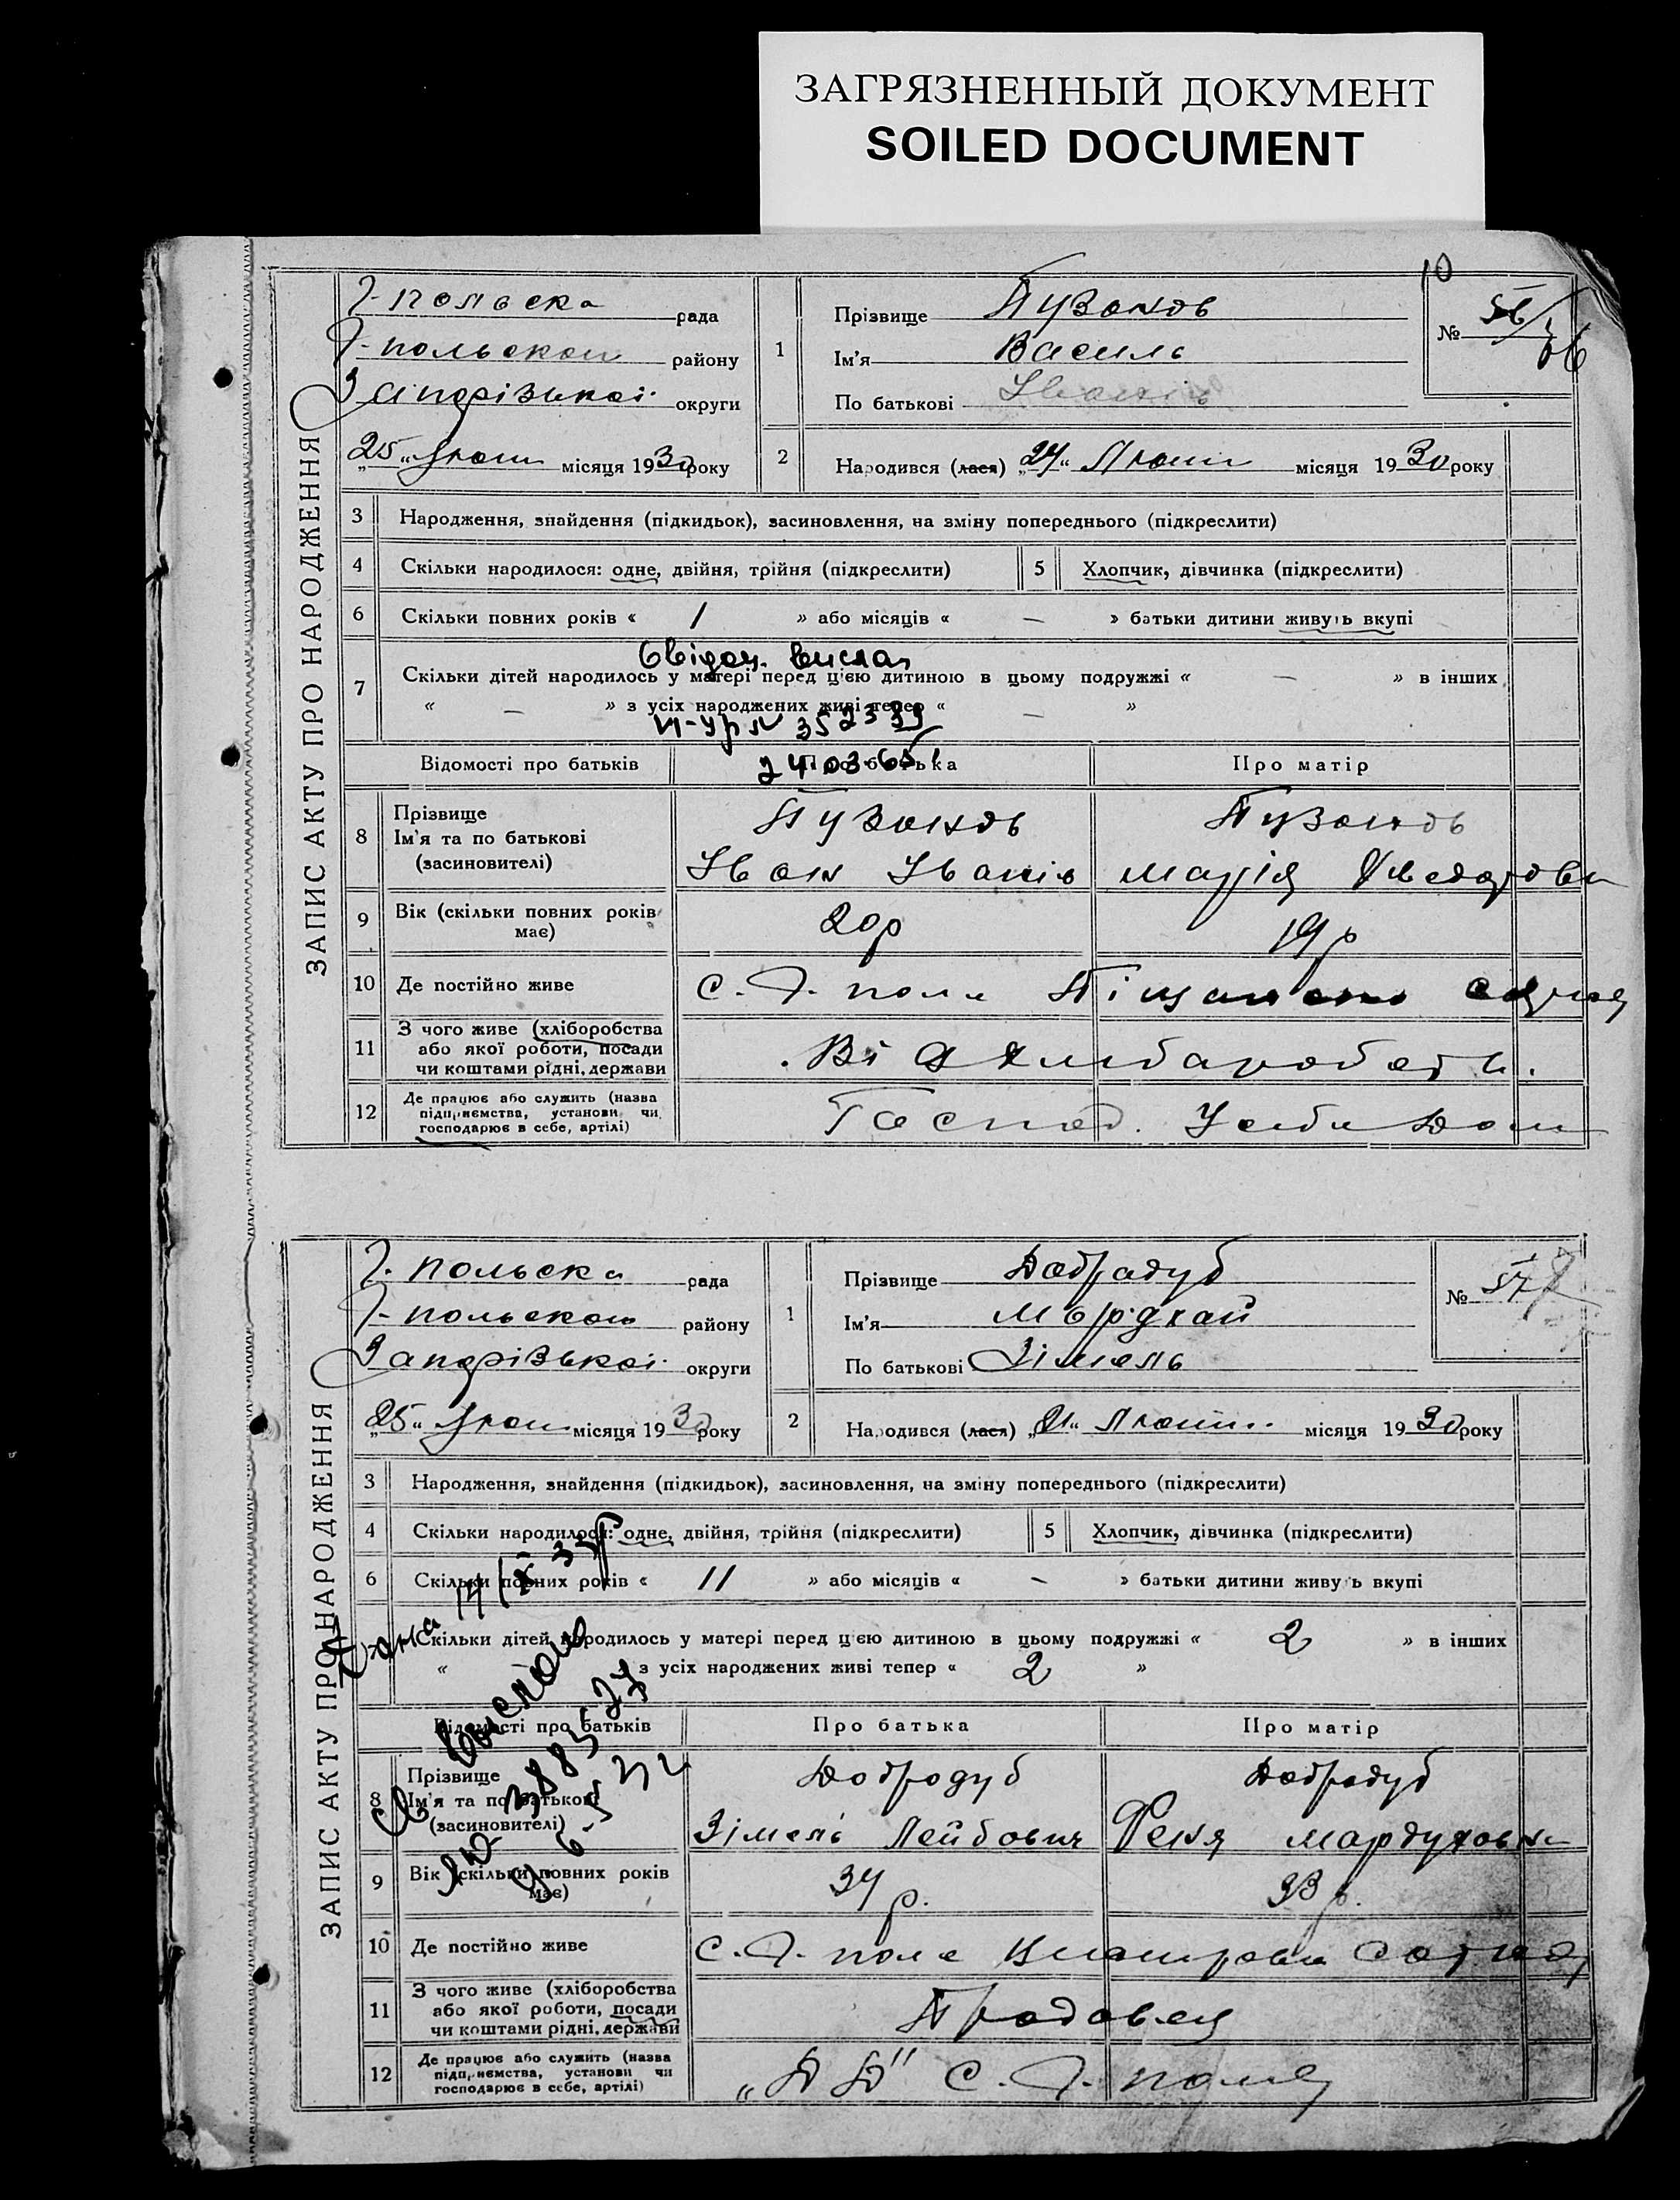 ЗАГРЯЗНЕННЫЙ ДОКУМЕНТ
SOILED DOCUMENT
ЗАПИС АКТУ ПРО НАРОДЖЕННЯ
10
польска рада
польскои району
Запорізької округи
„25“ місяця 1930 року
1
Прізвище Пузанов
Ім'я Василь
По батькові Іванів
№ 56
2
Народився (лася) „24“ Лютий місяця 1930 року
3 Народження, знайдення (підкидьок), засиновлення, на зміну попереднього (підкреслити)
4 Скільки народилося: одне, двійня, трійня (підкреслити) 5 Хлопчик, дівчинка (підкреслити)
6 Скільки повних років « 1 » або місяців « — » батьки дитини живуть вкупі
Свідоч. вислан
7 Скільки дітей народилось у матері перед цією дитиною в цьому подружжі « — » в інших
« — » з усіх народжених живі тепер « — »
Відомості про батьків Про батька Про матір
8 Прізвище
Ім'я та по батькові
(засиновителі)
Пузанов
Іван Іванів
Пузанов
Марія
9 Вік (скільки повних років має) 20р 19р
10 Де постійно живе с. поле
11 З чого живе (хліборобства
або якої роботи, посади
чи коштами рідні, держави
12 Де працює або служить (назва
підприємства, установи чи
господарює в себе, артілі)
Господ.
ЗАПИС АКТУ ПРО НАРОДЖЕННЯ
польска рада
польскои району
Запорізької округи
„25“ місяця 1930 року
1
Прізвище Добрадуб
Ім'я Мордхай
По батькові Зімель
№ 57
2
Народився (лася) „21“ Лютий місяця 1930 року
3 Народження, знайдення (підкидьок), засиновлення, на зміну попереднього (підкреслити)
4 Скільки народилося: одне, двійня, трійня (підкреслити) 5 Хлопчик, дівчинка (підкреслити)
6 Скільки повних років « 11 » або місяців « — » батьки дитини живуть вкупі
Скільки дітей народилось у матері перед цією дитиною в цьому подружжі « 2 » в інших
« з усіх народжених живі тепер « 2 »
Відомості про батьків Про батька Про матір
8 Прізвище
Ім'я та по батькові
(засиновителі)
Добродуб
Зімель Лейбович
Добродуб
Феня Мордуховна
9 Вік (скільки повних років має) 34 р. 33 р.
10 Де постійно живе с. поле
11 З чого живе (хліборобства
або якої роботи, посади
чи коштами рідні, держави
Продавец
12 Де працює або служить (назва
підприємства, установи чи
господарює в себе, артілі)
с. поля